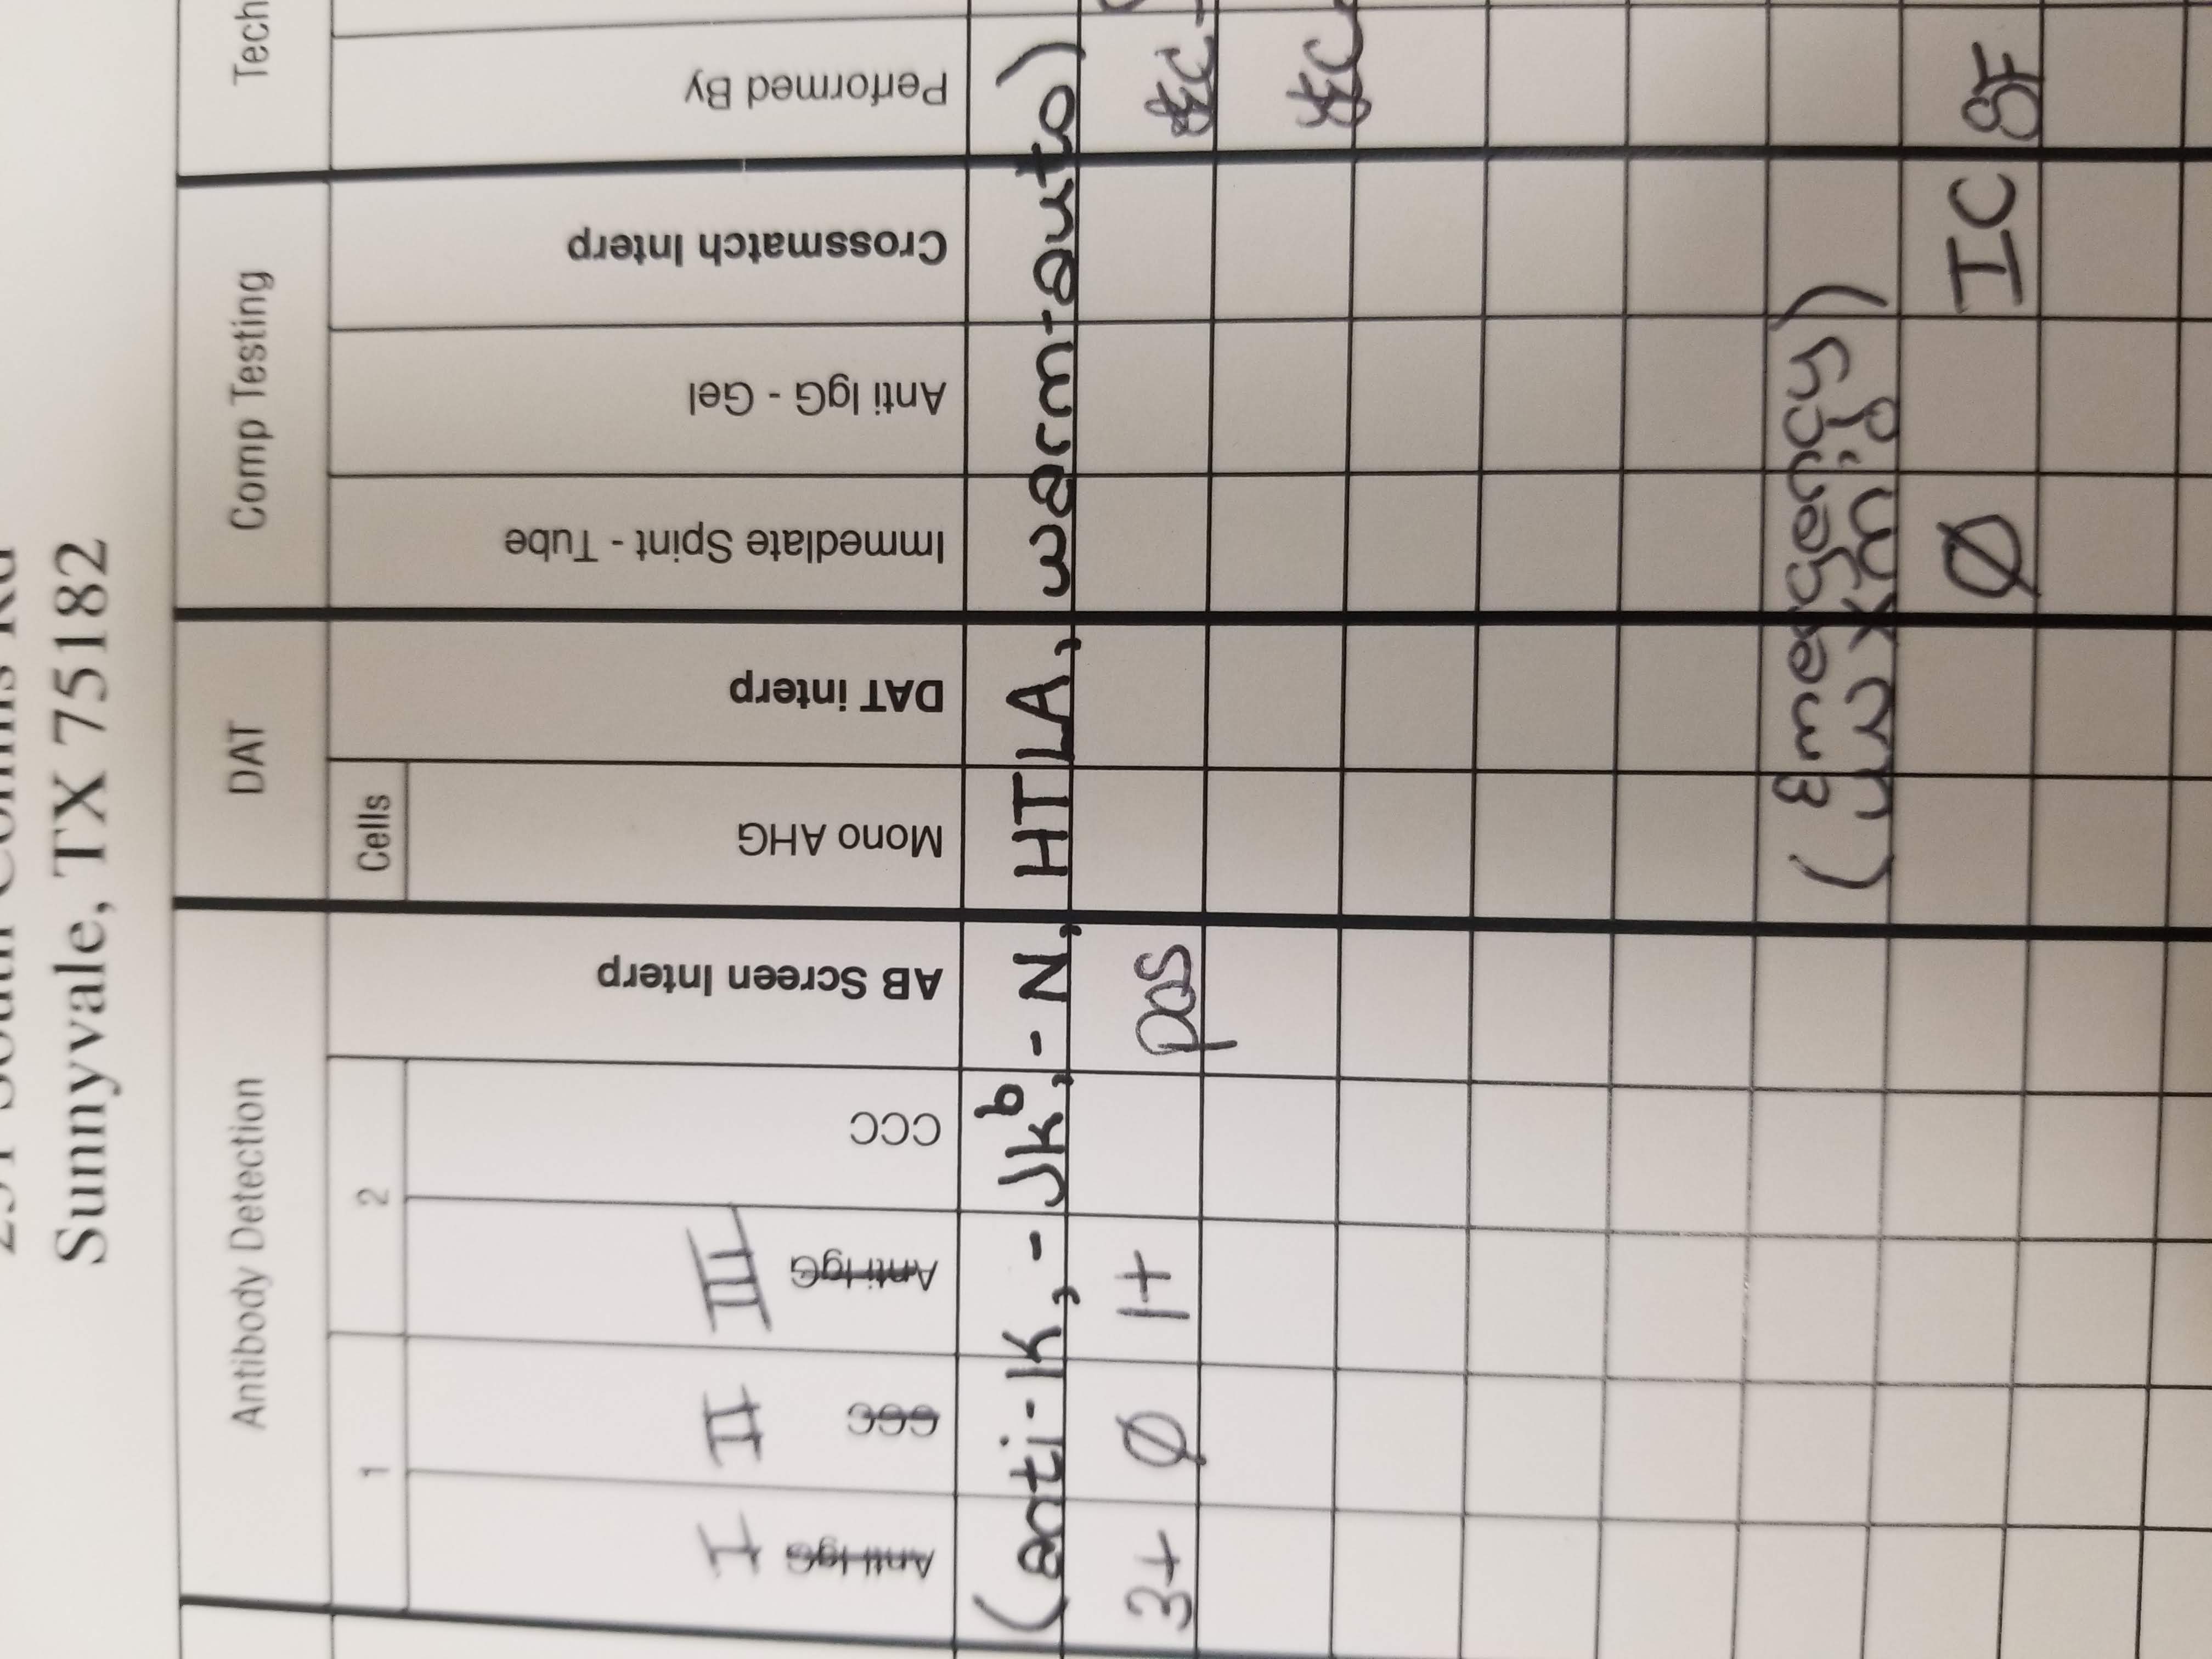 Sunnyvale, TX 75182
Antibody Detection
DAT
Comp Testing
Tech
1
2
Cells
I
II
III
Anti IgG
CCC
Anti IgG
CCC
AB Screen Interp
Mono AHG
DAT interp
Immediate Spint - Tube
Anti IgG - Gel
Crossmatch Interp
Performed By
(anti-K, -Jkᵇ, -N, HTLA, warm-auto)
3+ Ø 1+ pos
(Emergency
Ø IC